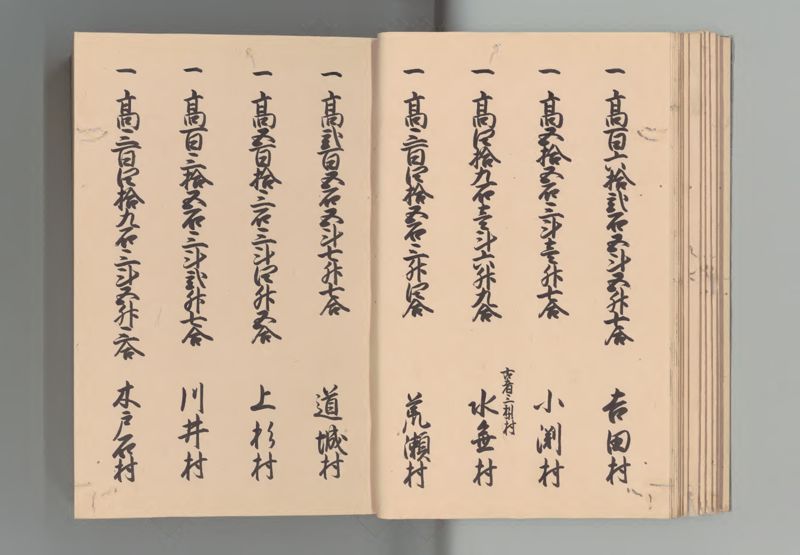 一 高百六拾弐石五斗五升七合 吉田村
一 高五拾五石三斗壱升七合 小渕村
一 高四拾九石壱斗六升九合 古者三樹村 水無村
一 高三百四拾五石三升四合 荒瀬村
一 高弐百五石五斗七升七合 道城村
一 高五百拾三石三斗四升五合 上杉村
一 高百三拾五石三斗弐升七合 川井村
一 高三百四拾九石三斗五升六合 木戸石村